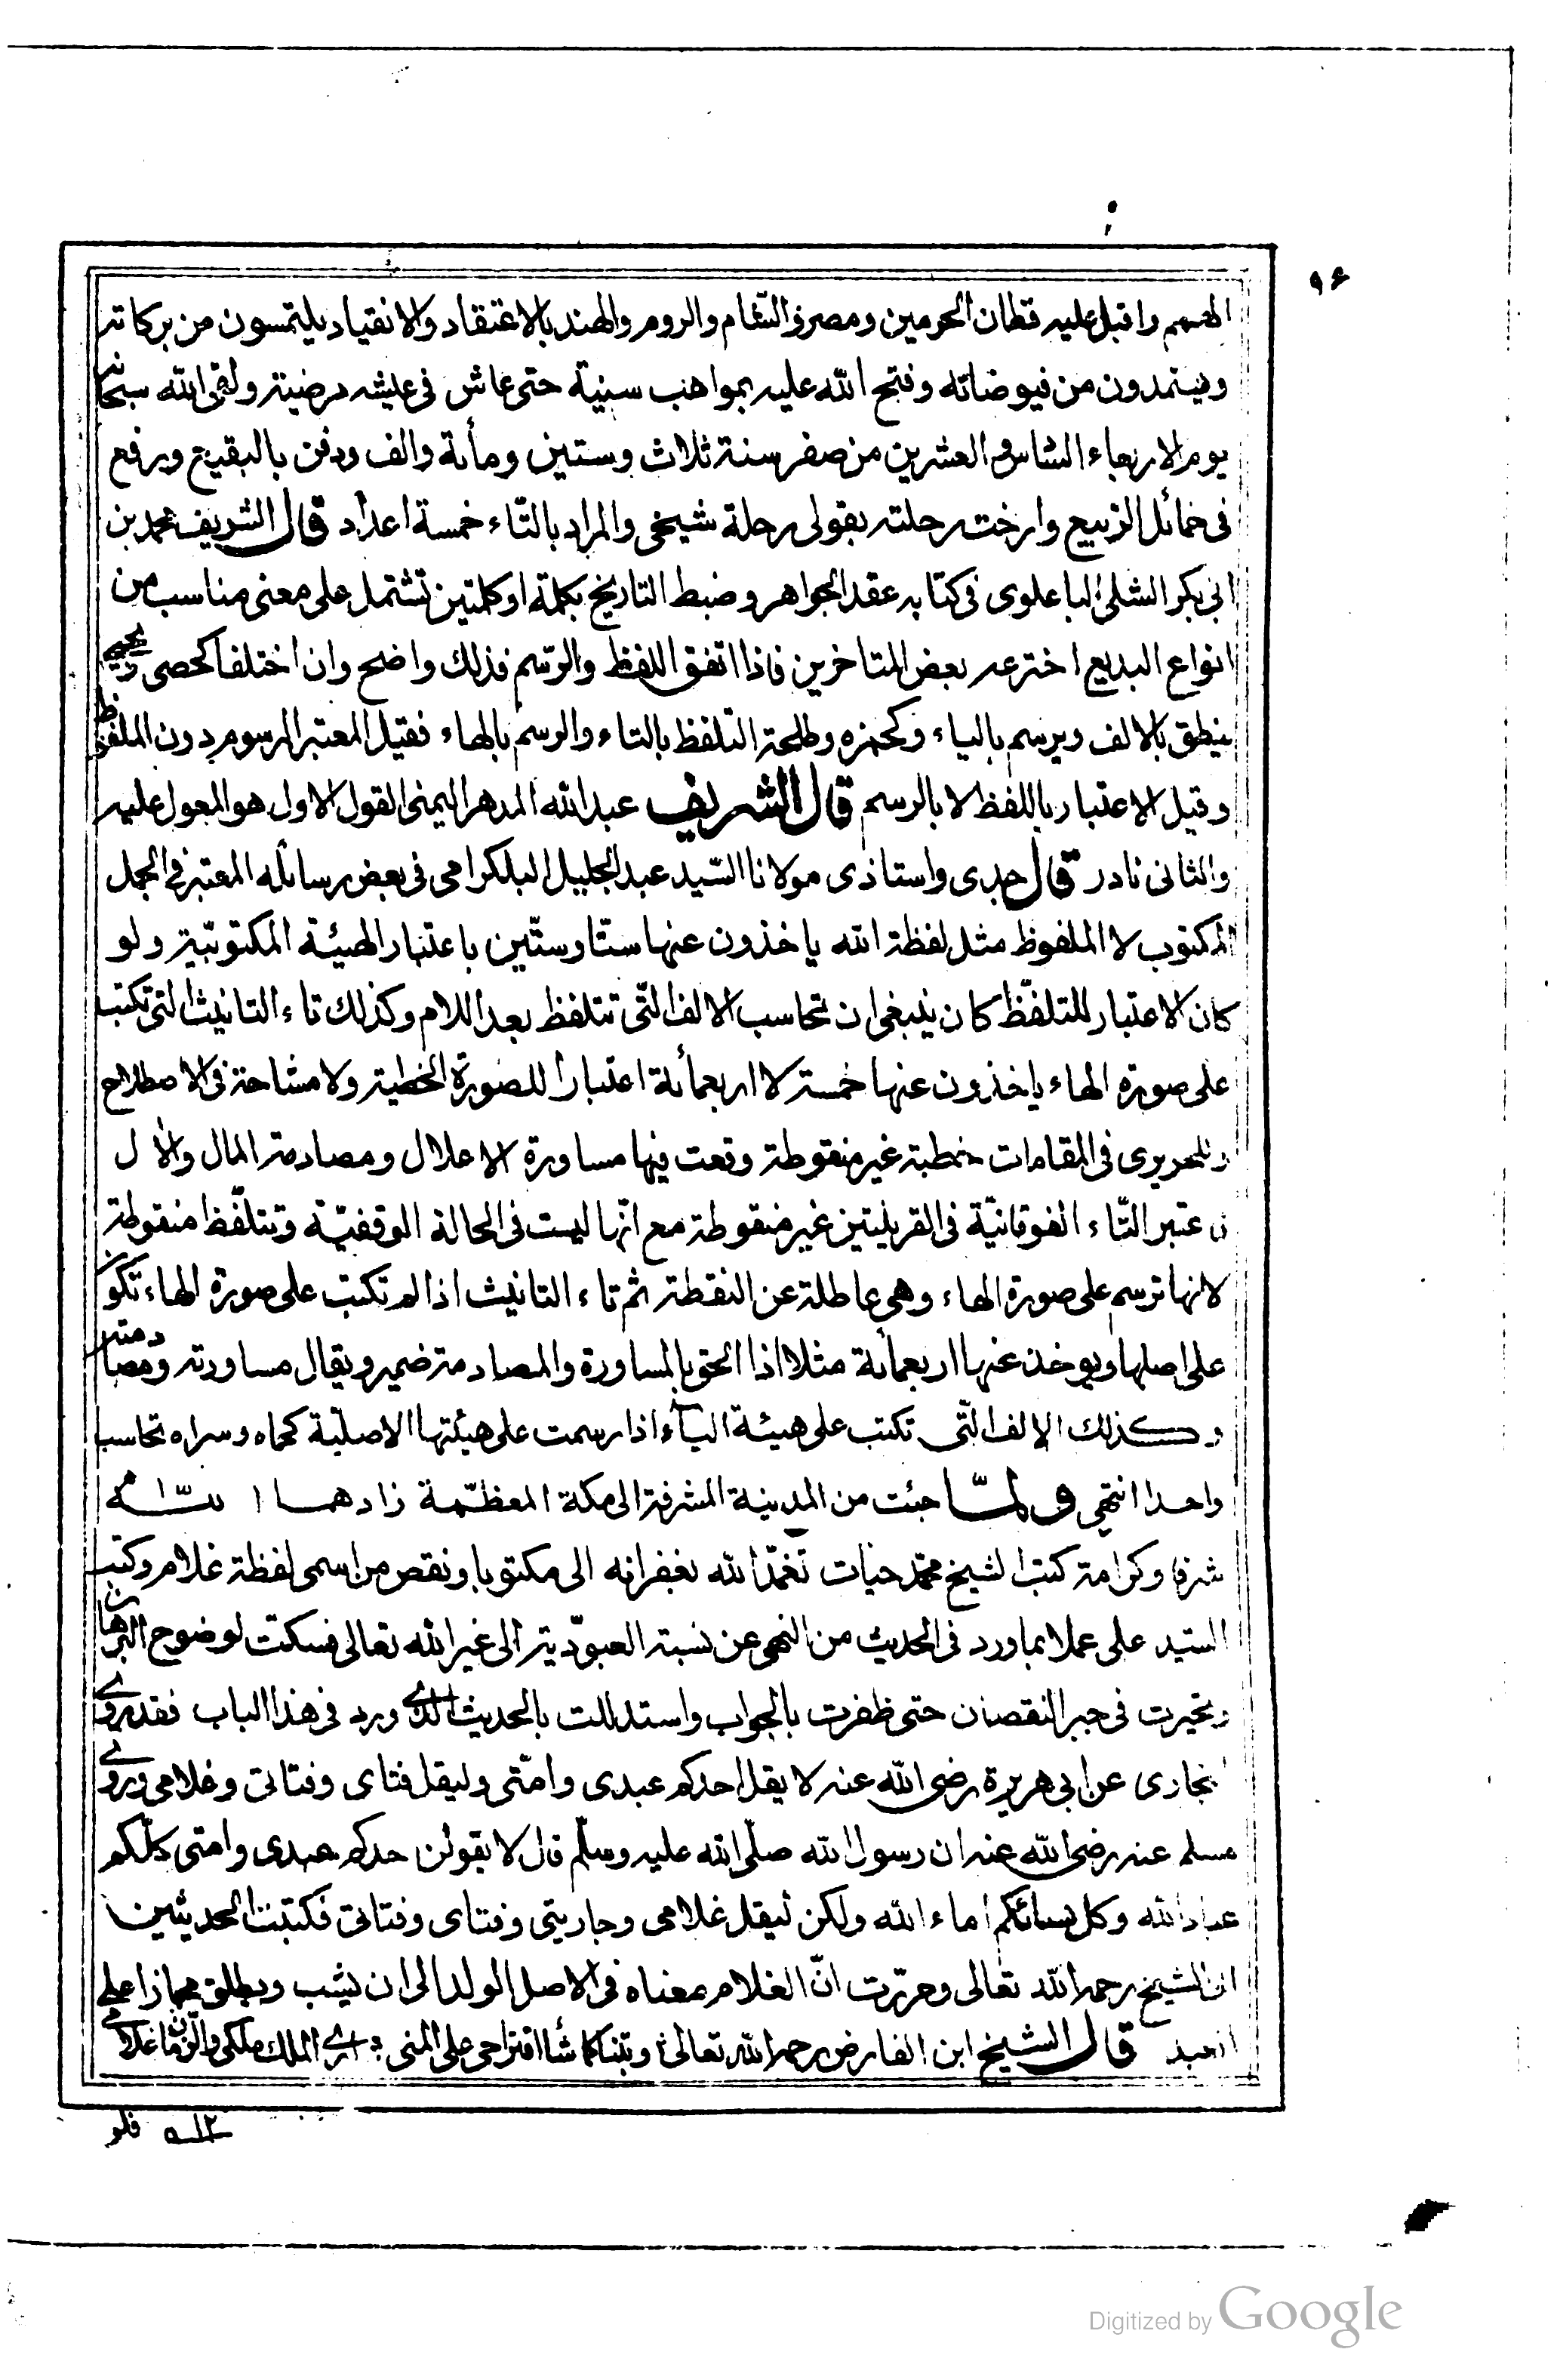 ۹۶
الهمم واقبل عليه قطان الحرمين ومصر والشّام والروم والهند بالاعتقاد والانقياد يلتمسون من بركاته
ويستمدون من فيوضاته وفتح الله عليه بمواهب سنية حتى عاش فى عيشه مرضية ولقى الله سبحانه
يوم الاربعاء السادس والعشرين من صفر سنة ثلاث وستين ومأية والف ودفن بالبقيع ورفع
فى خمائل الربيع وارخت رحلته بقولى رحلة شيخى والمراد بالتّاء خمسة اعداد قال الشريف محمد بن
ابى بكر الشلى الباعلوى فى كتابه عقد الجواهر وضبط التاريخ بكلمة او كلمتين تشتمل على معنى مناسب من
انواع البديع اخترعه بعض المتاخرين فاذا اتفق اللفظ والرّسم فذلك واضح وان اختلفا كحصى ويحيى
ينطق بالالف ويرسم بالياء وكحمزه وطلحة التلفظ بالتاء والرسم بالهاء فقيل المعتبر المرسوم دون الملفوظ
وقيل الاعتبار باللفظ لا بالرسم قال الشريف عبدالله المدهر اليمنى القول الاول هو المعول عليه
والثانى نادر قال جدى واستاذى مولانا السّيد عبد الجليل البلكرامى فى بعض رسائله المعتبر فى الجمل
المكتوب لا الملفوظ مثل لفظة الله ياخذون عنها ستّا وستّين باعتبار الهيئة المكتوبّية ولو
كان الاعتبار للتلفّظ كان ينبغى ان تحاسب الالف الّتى تتلفظ بعد اللام وكذلك تاء التانيث التى تكتب
على صورة الهاء ياخذون عنها خمسة لا اربعمأئة اعتبارا للصورة الخطية ولا مشاحة فى الاصطلاح
وللحريرى فى المقامات خطبة غير منقوطة وقعت فيها مساورة الاعلال ومصادمة المال والآل
واعتبر التّاء الفوقانيّة فى القرينتين غير منقوطة مع انّها ليست فى الحالة الوقفيّة وتتلفّظ منقوطة
لانها ترسم على صورة الهاء وهى عاطلة عن النقطة ثم تاء التانيث اذا لم تكتب على صورة الهاء تكون
على اصلها ويوخذ عنها اربعمأئة مثلا اذا الحق بالمساورة والمصادمة ضمير ويقال مساورته ومصادمته
وكذلك الالف الّتى تكتب على هيئة الياء اذا رسمت على هيئتها الاصليّة كحماه وسراه تحاسب
واحدا انتهى ولمّا جئت من المدينة المشرفة الى مكة المعظّمة زادهما اللّه
شرفا وكرامة كتب الشيخ محمّد حيات تغمّد الله بغفرانه الى مكتوبا ونقص من اسمى لفظة غلام وكتب
السّيد على عملا بما ورد فى الحديث من النهى عن نسبة العبوديّة الى غير الله تعالى فسكت لوضوح البرهان
وتحيرت فى جبر النقصان حتى ظفرت بالجواب واستدللت بالحديث الذى ورد فى هذا الباب فقد روى
البخارى عن ابى هريرة رضى الله عنه لا يقل احدكم عبدى وامّتى وليقل فتاى وفتاتى وغلامى وروى
مسلم عنه رضى الله عنه ان رسول الله صلّى الله عليه وسلّم قال لا يقولن احدكم عبدى وامتى كلّكم
عباد الله وكل نسائكم اماء الله ولكن ليقل غلامى وجاريتى وفتاى وفتاتى فكتبت الحديثين
الى الشيخ رحمه الله تعالى وحرّرت انّ الغلام معناه فى الاصل الولد الى ان يشب ويطلق مجازا على
العبد قال الشيخ ابن الفارض رحمه الله تعالى وبتنا كما شأ اقتراحى على المنى ؛ ارى الملك ملكى والزمان غلامى
فلو